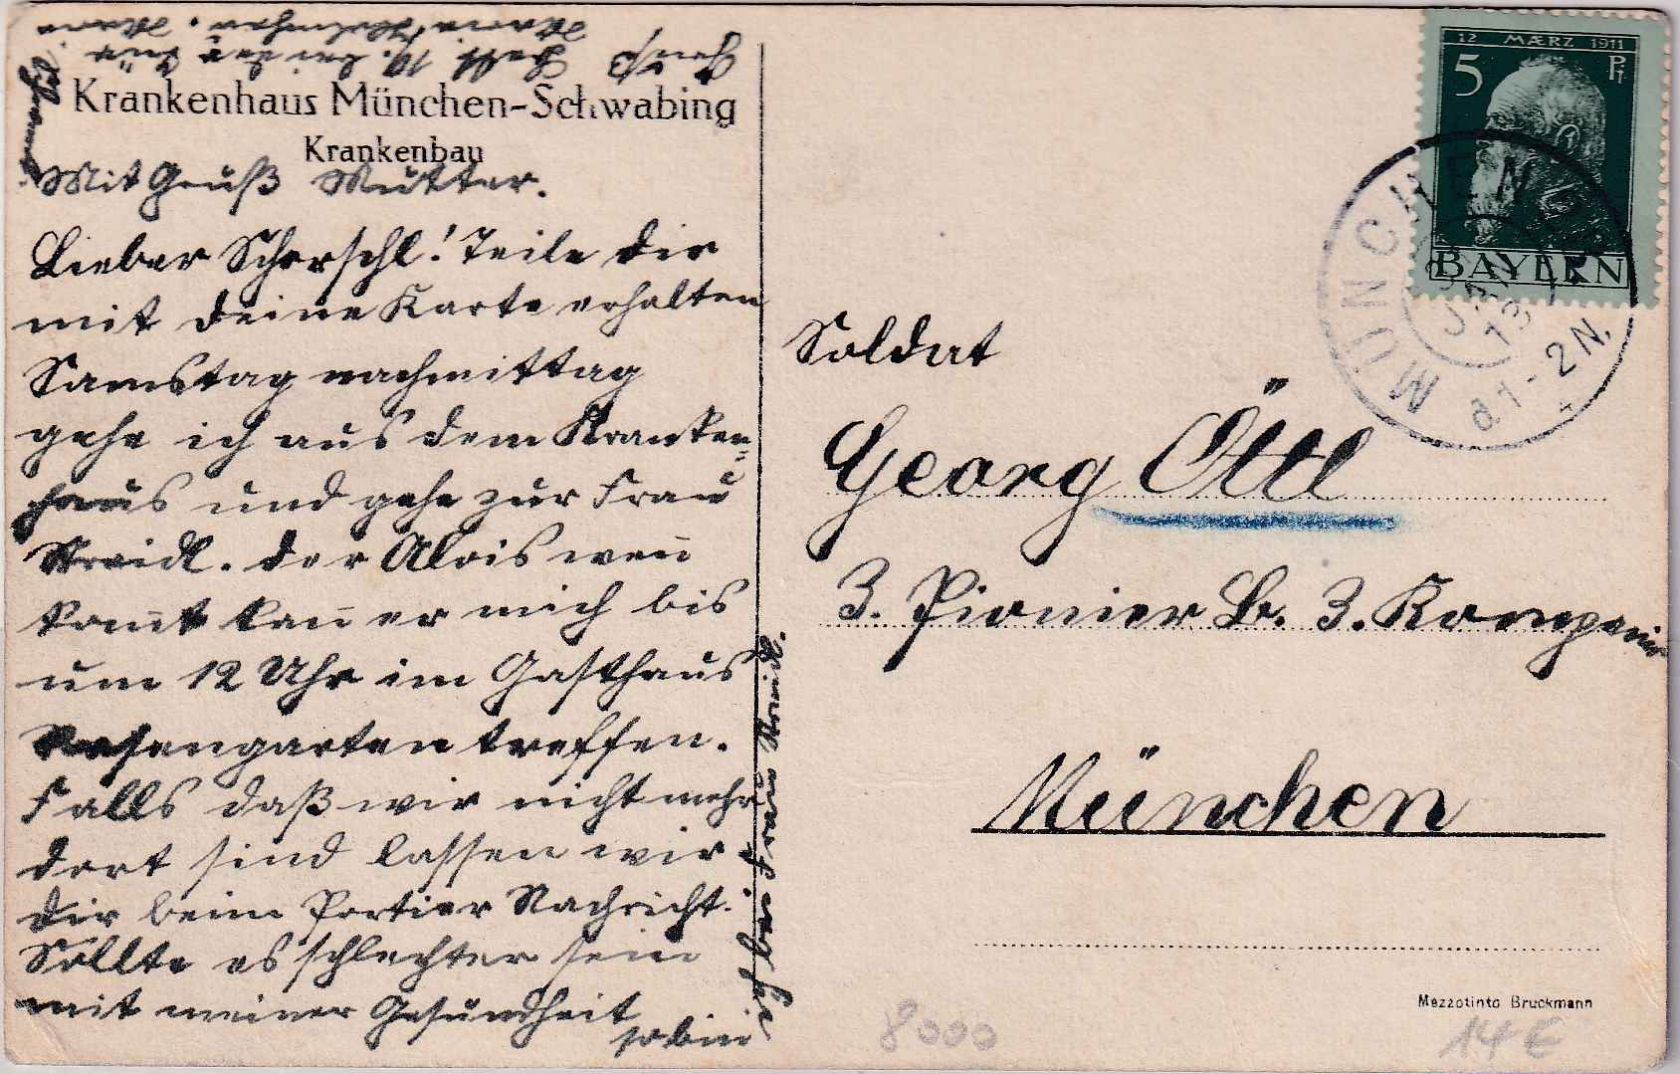 Krankenhaus München-Schwabing
Krankenbau
Mit Gruß Mutter.
Lieber Schorschl! Teile dir
mit deine Karte erhalten
Samstag nachmittag
gehe ich aus dem Kranken=
haus und gehe zur Frau
Streidl. der Alois wen̄
kom̄t kan̄ er mich bis
um 12 Uhr im Gasthaus
Rosengarten treffen.
Falls daß wir nicht mehr
dort sind lassen wir
dir beim Portier Nachricht.
Sollte es schlechter sein
mit meiner Gesundheit
so bin
Gruß
12 MÆRZ 1911
5 Pf
BAYERN
MÜNCHEN
JAN
13
1-2 N.
Soldat
Georg Öttl
3. Pionier B. 3. Kompanie
München
Mezzotinto Bruckmann
8000
14 €